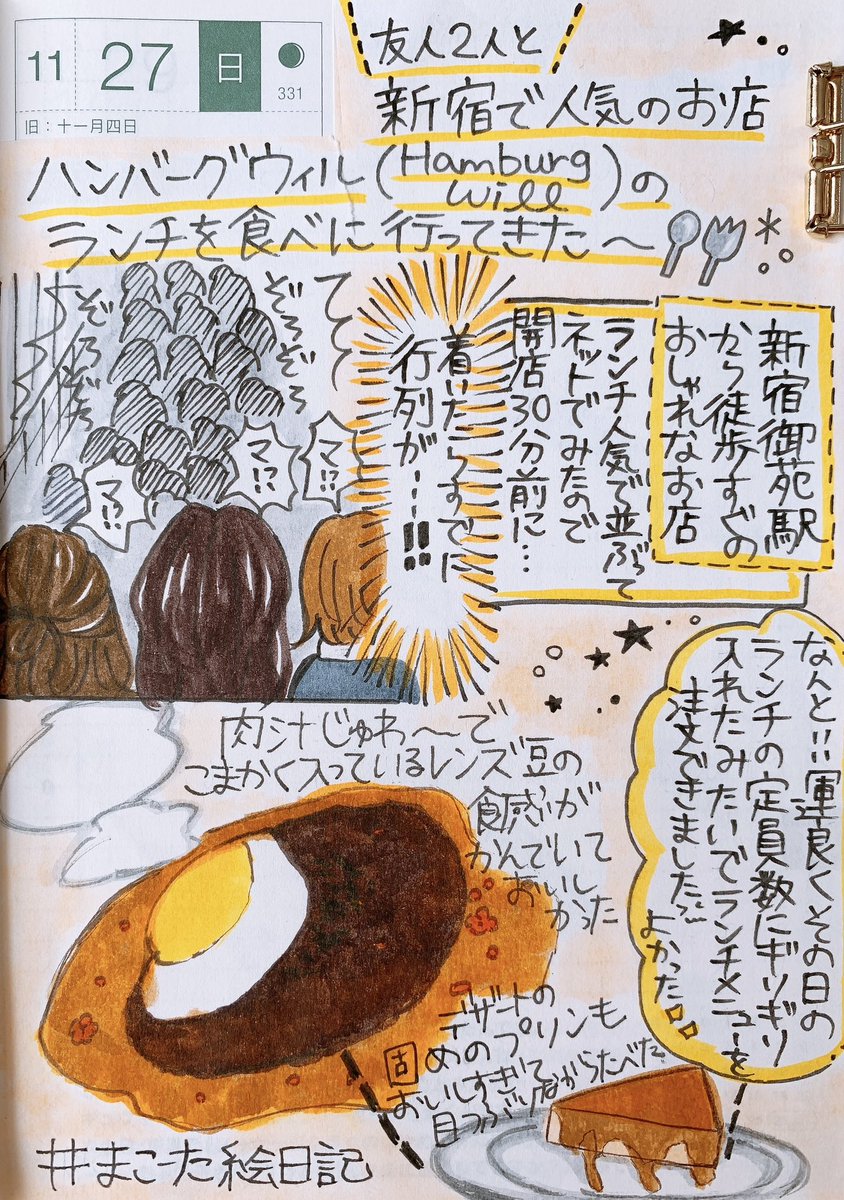 11
27
日
331
旧：十一月四日
友人2人と
新宿で人気のお店
ハンバーグウィル(Hamburg
will)の
ランチを食べに行ってきた〜
新宿御苑駅
から徒歩すぐの
おしゃれなお店
ランチ人気で並ぶって
ネットでみたので
開店30分前に…
着いたらすでに
行列が……!!
て
ぞろぞろ
ぞろぞろ
マ!?
マ!?
マ!?
なんと!!運良くその日の
ランチの定員数にギリギリ
入れたみたいでランチメニューを
注文できました
よかった
肉汁じゅわ〜で
こまかく入っているレンズ豆の
食感が
かんでいて
おいし
かった
デザートの
固めのプリンも
おいしすぎて
目つぶりながらたべた
#まこーた絵日記